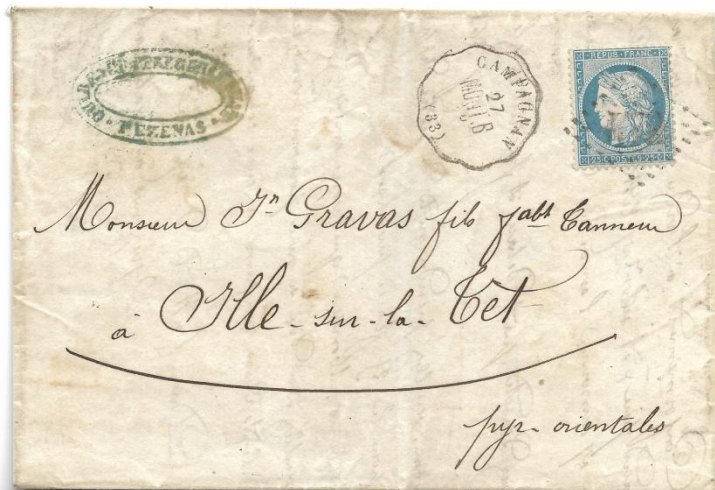 PEZENAS
CAMPAGNAN
27
MONT.B
(33)
REPUB. FRANC.
25 c. POSTES 25 c.
Monsieur Jn Gravas fils fabt Tanneur
à Ille-sur-la-Tet
pyr-orientales